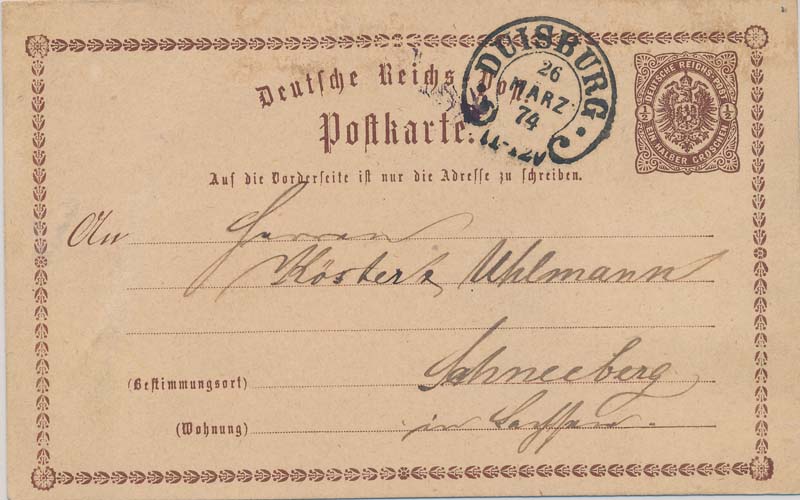 Deutsche Reichs-Post.
Postkarte.
DUISBURG
26
MÄRZ
74
DEUTSCHE REICHS-POST
EIN HALBER GROSCHEN
½ ½
Auf die Vorderseite ist nur die Adresse zu schreiben.
An Herren
Köster & Uhlmann
(Bestimmungsort) Schneeberg
(Wohnung) in Sachsen.